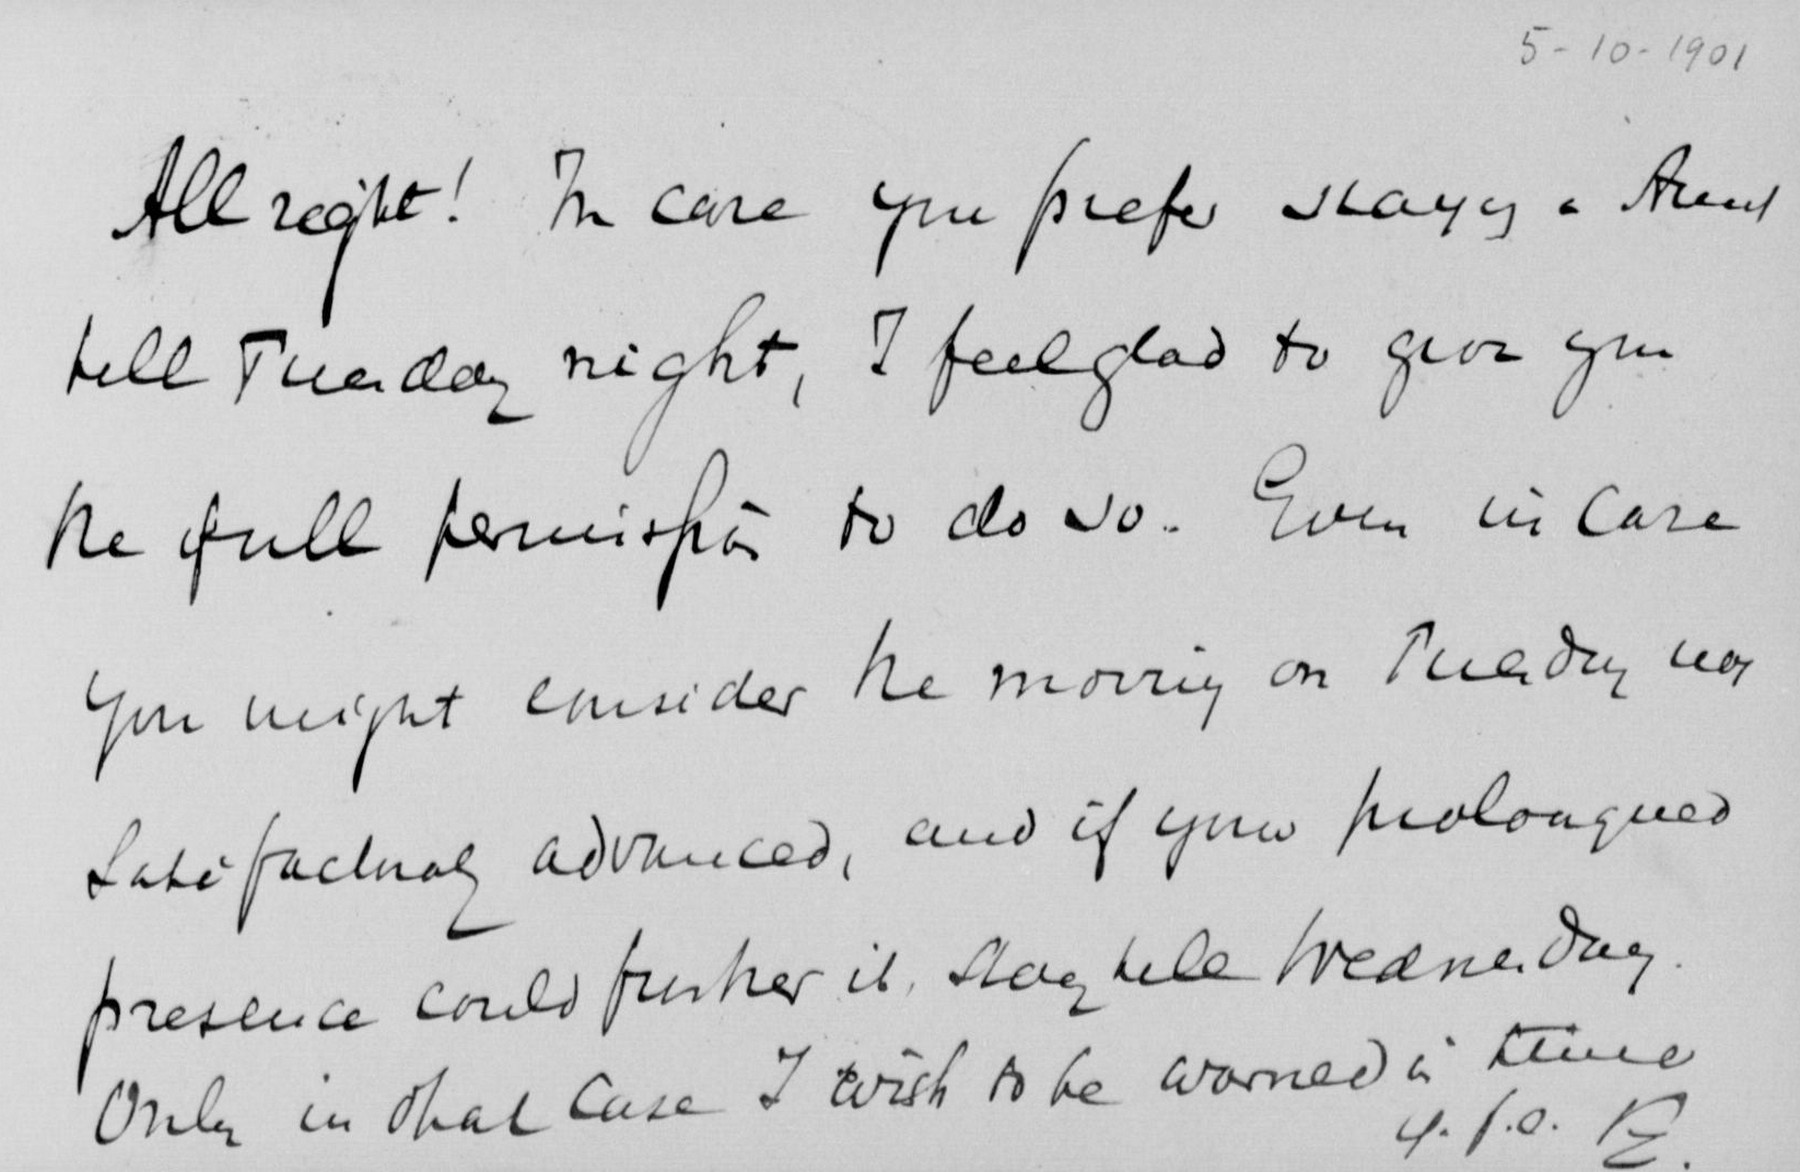 5-10-1901
All right! In case you prefer staying a
till Tuesday night, I feel glad to give you
the full permission to do so. Even in case
you might consider the moving on Tuesday not
satisfactorily advanced, and if your prolongued
presence could further it, stay till Wednesday.
Only in that case I wish to be warned in time